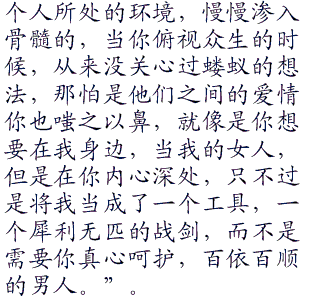 个人所处的环境，慢慢渗入
骨髓的，当你俯视众生的时
候，从来没关心过蝼蚁的想
法，那怕是他们之间的爱情
你也嗤之以鼻，就像是你想
要在我身边，当我的女人，
但是在你内心深处，只不过
是将我当成了一个工具，一
个犀利无匹的战剑，而不是
需要你真心呵护，百依百顺
的男人。”。